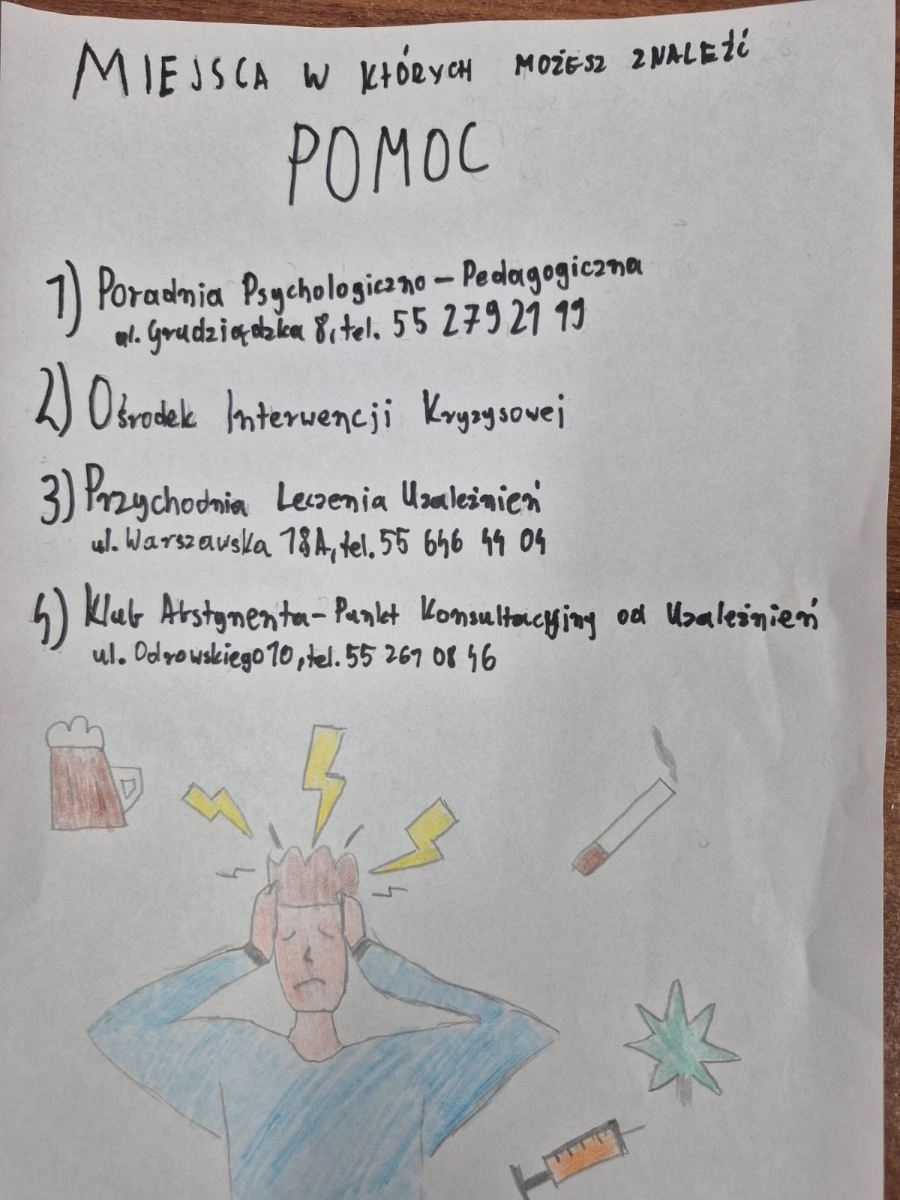 MIEJSCA W KTÓRYCH MOŻESZ ZNALEŹĆ
POMOC
1) Poradnia Psychologiczno - Pedagogiczna
ul. Grudziądzka 8, tel. 55 279 21 19
2) Ośrodek Interwencji Kryzysowej
3) Przychodnia Leczenia Uzależnień
ul. Warszawska 18A, tel. 55 646 44 04
4) Klub Abstynenta - Punkt Konsultacyjny od Uzależnień
ul. Odrowskiego 10, tel. 55 261 08 46